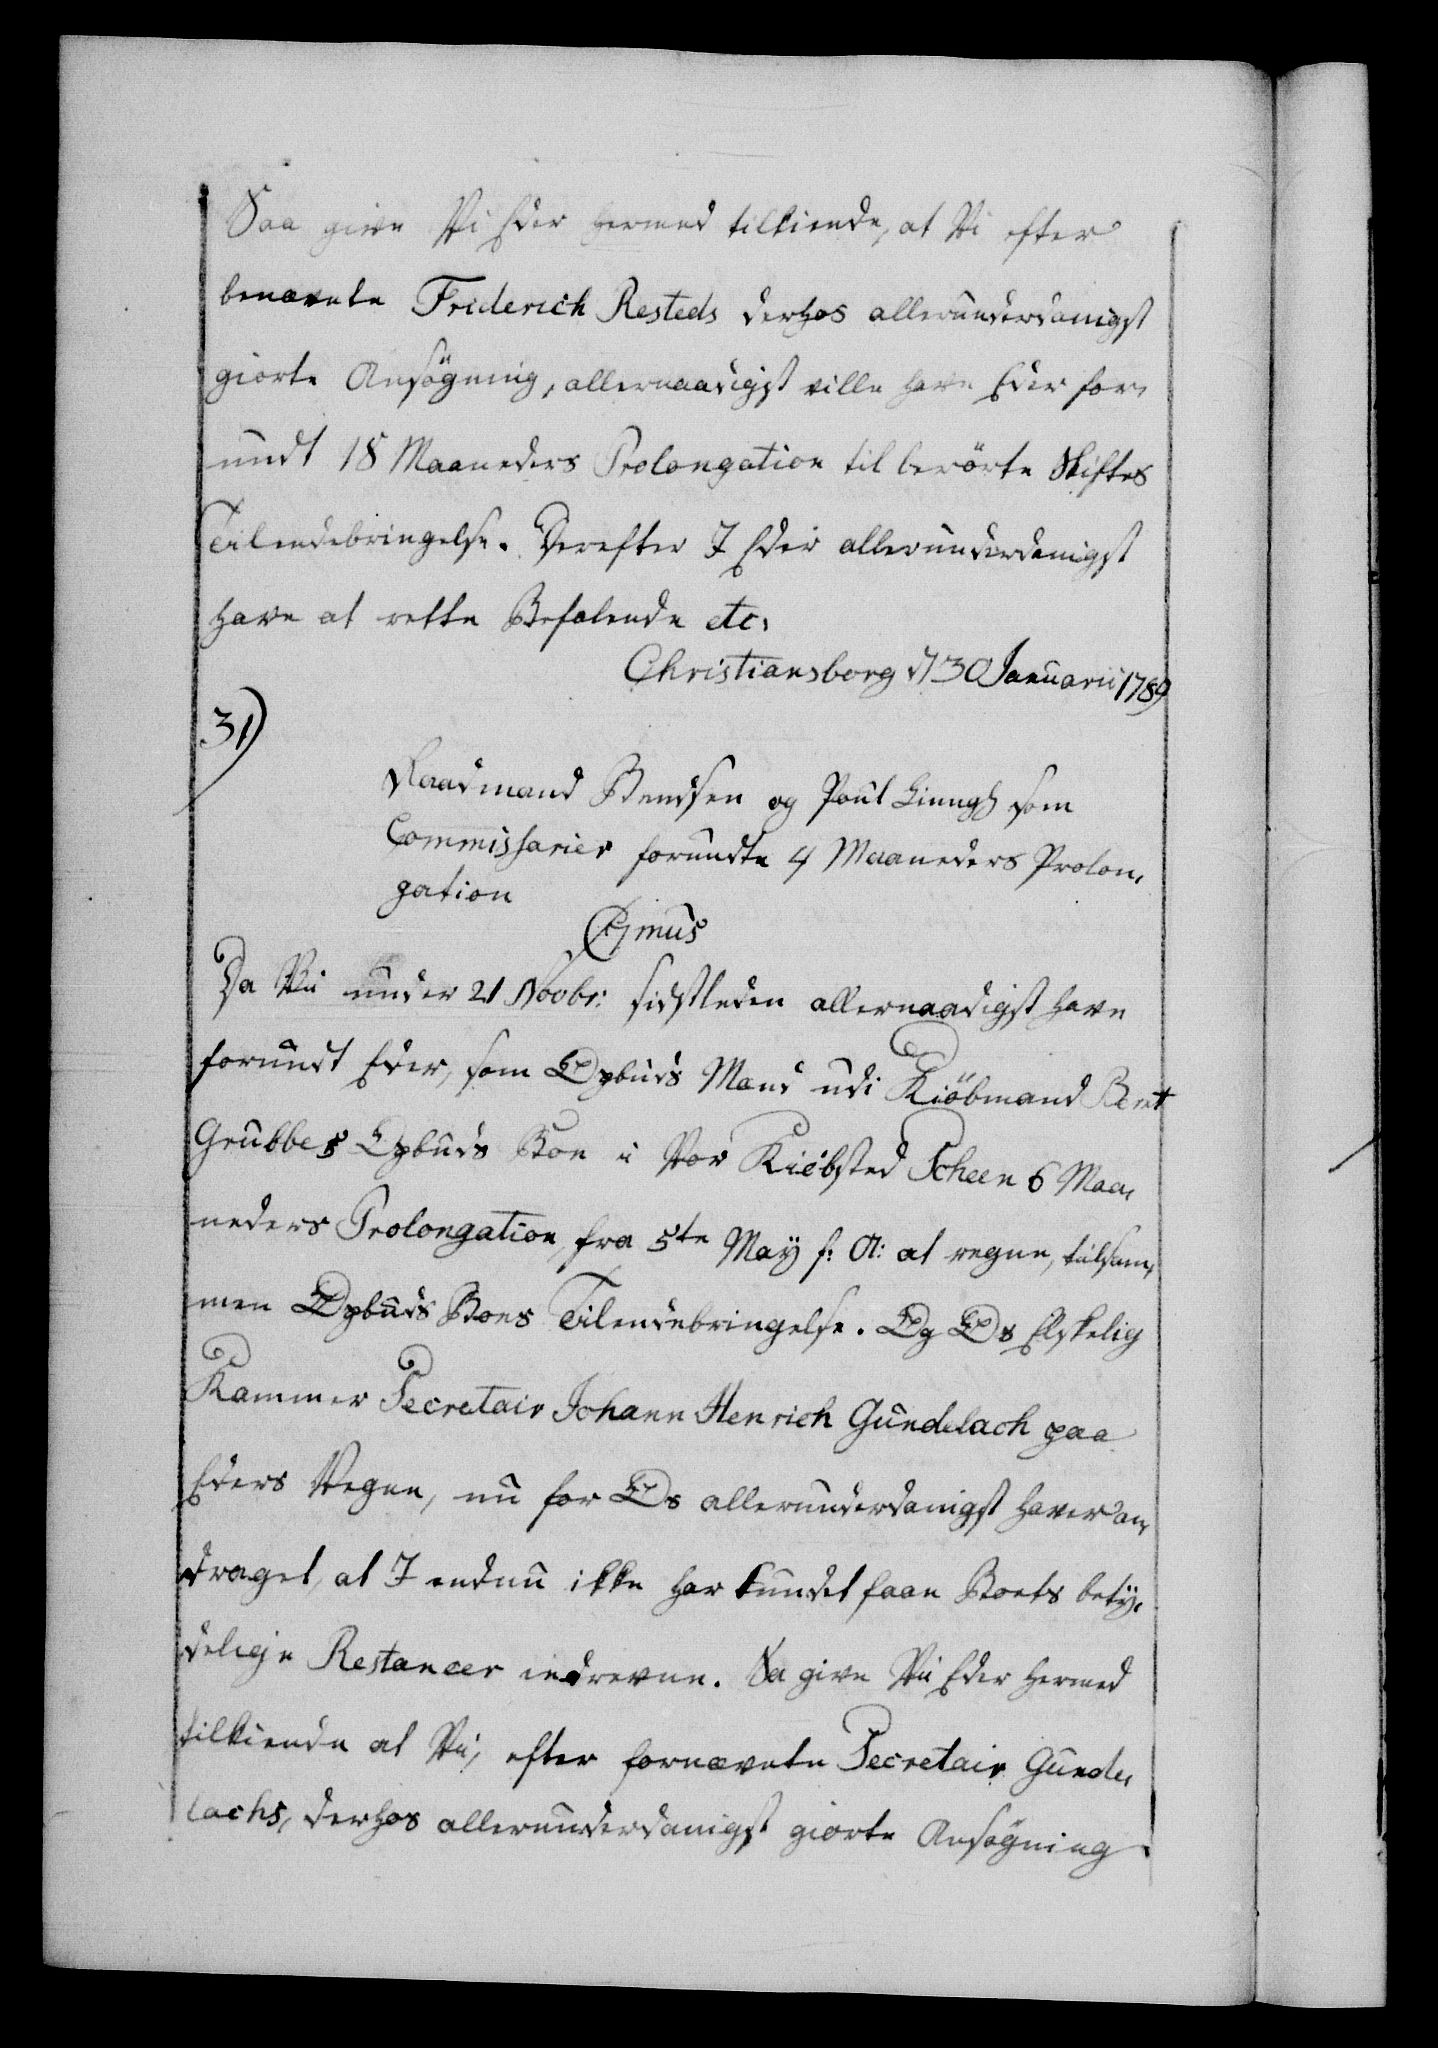 Saa give Vi Eder hermed tilkiende, at Vi efter
benævnte Friderich Resteds derhos allerunderdanigst
giorte Ansögning, allernaadigst ville have Eder for,
undt 18 Maaneders Prolongation til berörte Skiftes
Tilendebringelse. Derefter I Eder allerunderdanigst
have at rette Befalende etc.
Christiansborg d 30 Januarii 1789
31)
Raadmand Bendsen og Poul Linugh som
Commissarier forundte 4 Maaneders Prolon,
gation
C7mus
Da Vii under 21 Novbr: sidstleden allernaadigst have
forundt Eder, som Opbuds Mænd udi Kiöbmand Bent
Grubbes Opbuds Boe i Vor Kiöbsted Scheen 6 Maa,
neders Prolongation, fra 5te May f: A: at regne, tilsam,
men Opbuds Boes Tilendebringelse. Og Os Elskelig
Kammer Secretair Johann Henrich Gundelach paa
Eders Vegne, nu for Os allerunderdanigst haver an,
draget, at I endnu ikke har kundet faae Boets betÿ,
delige Restancer inddrevne. Sa give Vii Eder hermed
tilkiende at Vii, efter fornævnte Secretair Gunde,
lachs, derhos allerunderdanigst giorte Ansøgning